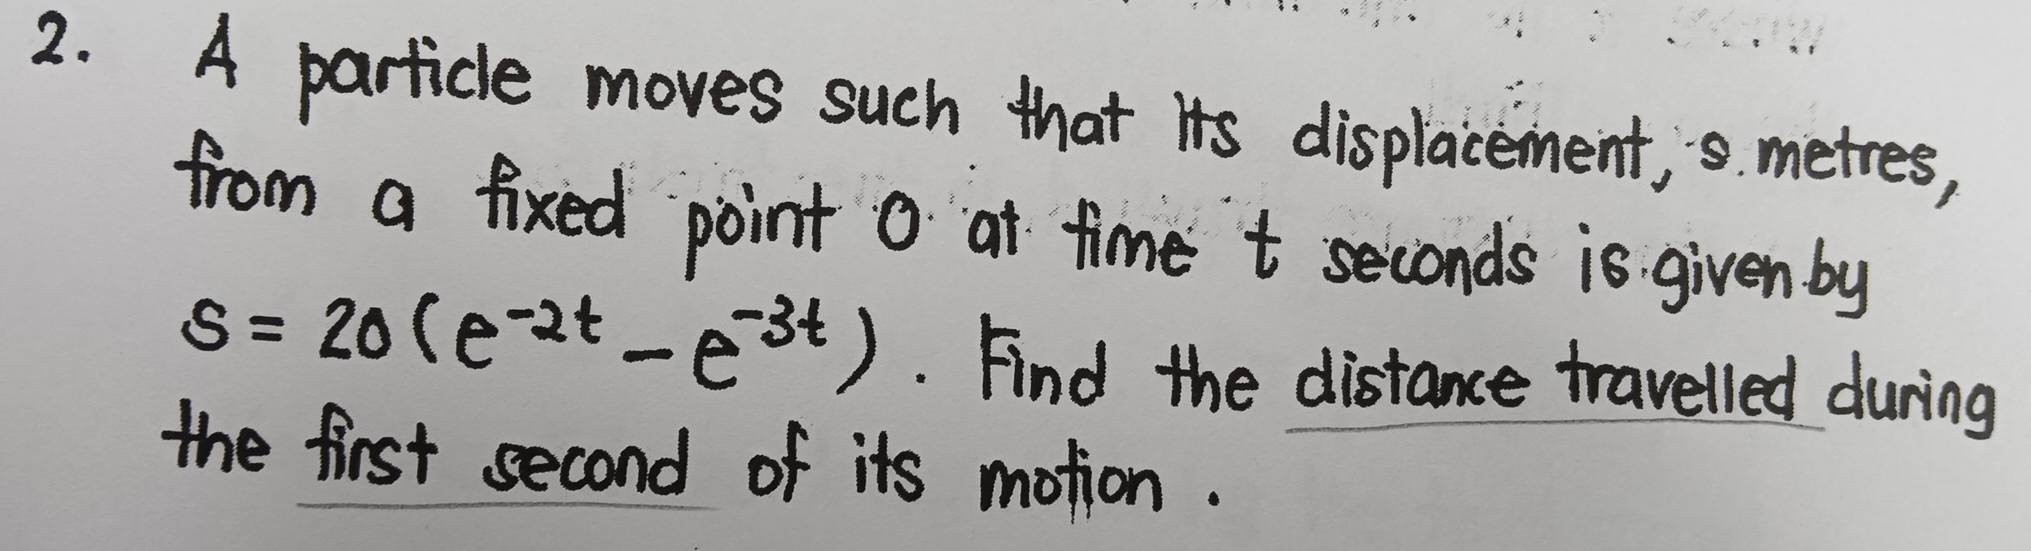 2. A particle moves such that its displacement, s metres,
from a fixed point O at time t seconds is given by
s = 20(e⁻²ᵗ - e⁻³ᵗ). Find the distance travelled during
the first second of its motion.